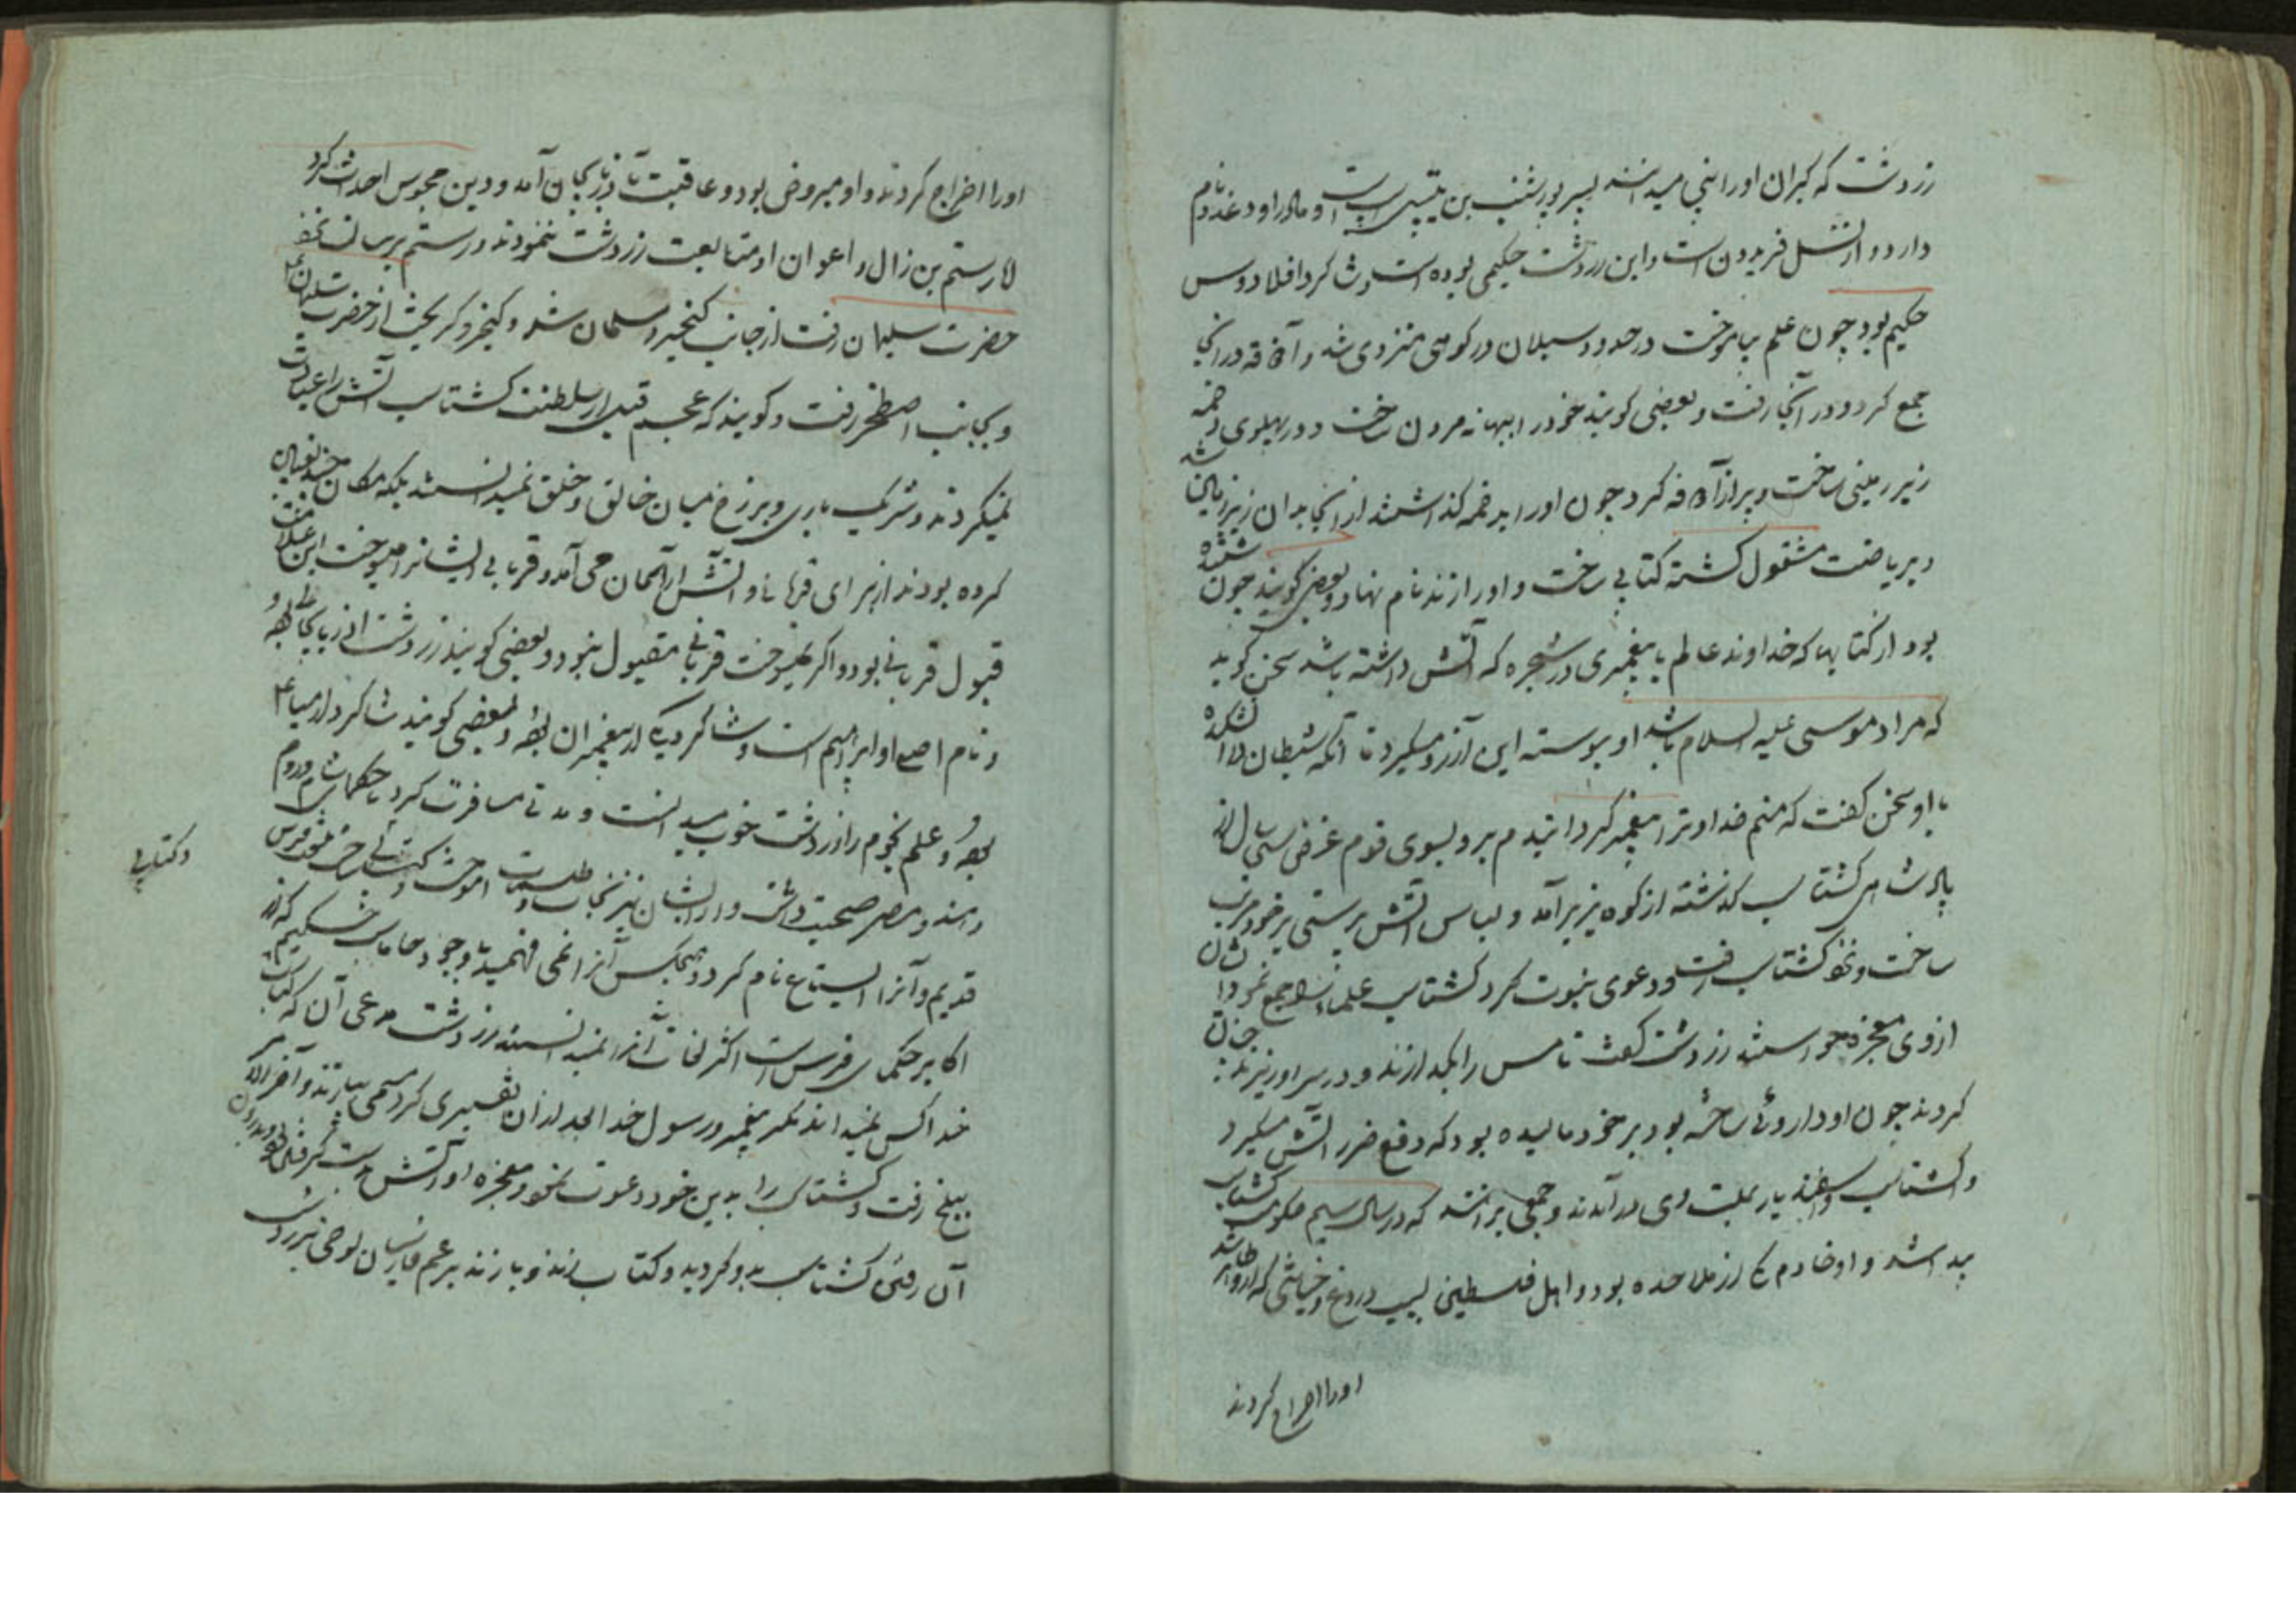 زردشت که کبران اورا نبی میدانند پسر پورشسب بن است و مادر او دغدو نام
دارد و از نسل فریدون است و این زردشت حکیمی بوده است شاکرد افلادوس
حکیم بود چون علم بیاموخت در حدود سبلان در کوهی منزوی شد و آذوقه در آنجا
جمع کرد و در آنجا رفت و بعضی کویند خود را ببهانه مردن ساخت و در پهلوی دخمه
زیر زمینی ساخت و پر از آذوقه کرد چون اورا بدخمه کذاشتند از آنجا بدان زیر زمین
و بریاضت مشغول کشته کتابی ساخت و اورا زند نام نهاد و بعضی کویند چون شنیده
بود از کتابها که خداوند عالم با پیغمبری در شجره که آتش داشته باشد سخن کوید
که مراد موسی علیه السلام باشد او پیوسته این آرزو میکرد تا آنکه شیطان از آتشکده
با او سخن کفت که منم خدا و ترا پیغمبر کردانیدم برو بسوی قوم غرض سی سال از
پادشاهی کشتاسب کذشته از کوه بزیر آمد و لباس آتش پرستی بر خود مرتب
ساخت و نزد کشتاسب رفت و دعوی نبوت کرد کشتاسب علما را جمع نمود ایشان
از وی معجزه خواستند زردشت کفت تا مس را بکدازند و در سر او ریزند چنان
کردند چون او داروئی ساخته بود بر خود مالیده بود که دفع ضرر آتش میکرد
و کشتاسب و اسفندیار بملت وی در آمدند و جمعی برانند که در سال سیم حکومت کشتاسب
پیدا شد و او خادم یکی از ملاحده بود و اهل فلسطین بسبب دروغ و خیانتی که از او ظاهر شد
اورا اخراج کردند
اورا اخراج کردند و او مبروص بود و عاقبت بآذربایجان آمد و دین مجوس احداث کرد
لا رستم بن زال و اعوان او متابعت زردشت ننمودند و رستم برسالت نزد
حضرت سلیمان رفت از جانب کیخسرو و مسلمان شد و کیخسرو کریخت از حضرت سلیمان
و بجانب اصطخر رفت و کویند که عجم قبل از سلطنت کشتاسب آتش را عبادت
نمیکردند و شریک باری و برزخ میان خالق و خلق نمیدانستند بلکه مکان چند تعیین
کرده بودند از برای قربانی و آتش از آسمان می آمد و قربانی ایشانرا میسوخت این علامت
قبول قربانی بود و اکر نمیسوخت قربانی مقبول نبود و بعضی کویند زردشت آذربایجانی بوده و
و نام اصلی او ابراهیم است و شاکرد یکی از پیغمبران بوده و بعضی کویند شاکرد ارمیا
بوده و علم نجوم را زردشت خوب میدانست و مدتی مسافرت کرد با حکمای شام و روم
و هند و مصر صحبت داشت و از ایشان نیرنجات و طلسمات آموخت و کتابی ساخت بلغت فرس
قدیم و آنرا ایستاع نام کرد و هیچکس آنرا نمی فهمید با وجود جاماسب حکیم که از
اکابر حکمای فرس است اکثر لغات آنرا نمیدانستند زردشت مدعی آن که کتاب
خدا کس نمیداند مکر پیغمبر و رسول خدا بعد از آن تفسیری کرد مسمی بپازند و آخر الامر
ببلخ رفت و کشتاسب را بدین خود دعوت نمود و معجزه او آتش بدست کرفتن بود و بدان
آن رفت کشتاسب بدو کروید و کتاب زند و پازند بر عجم
و کتابی